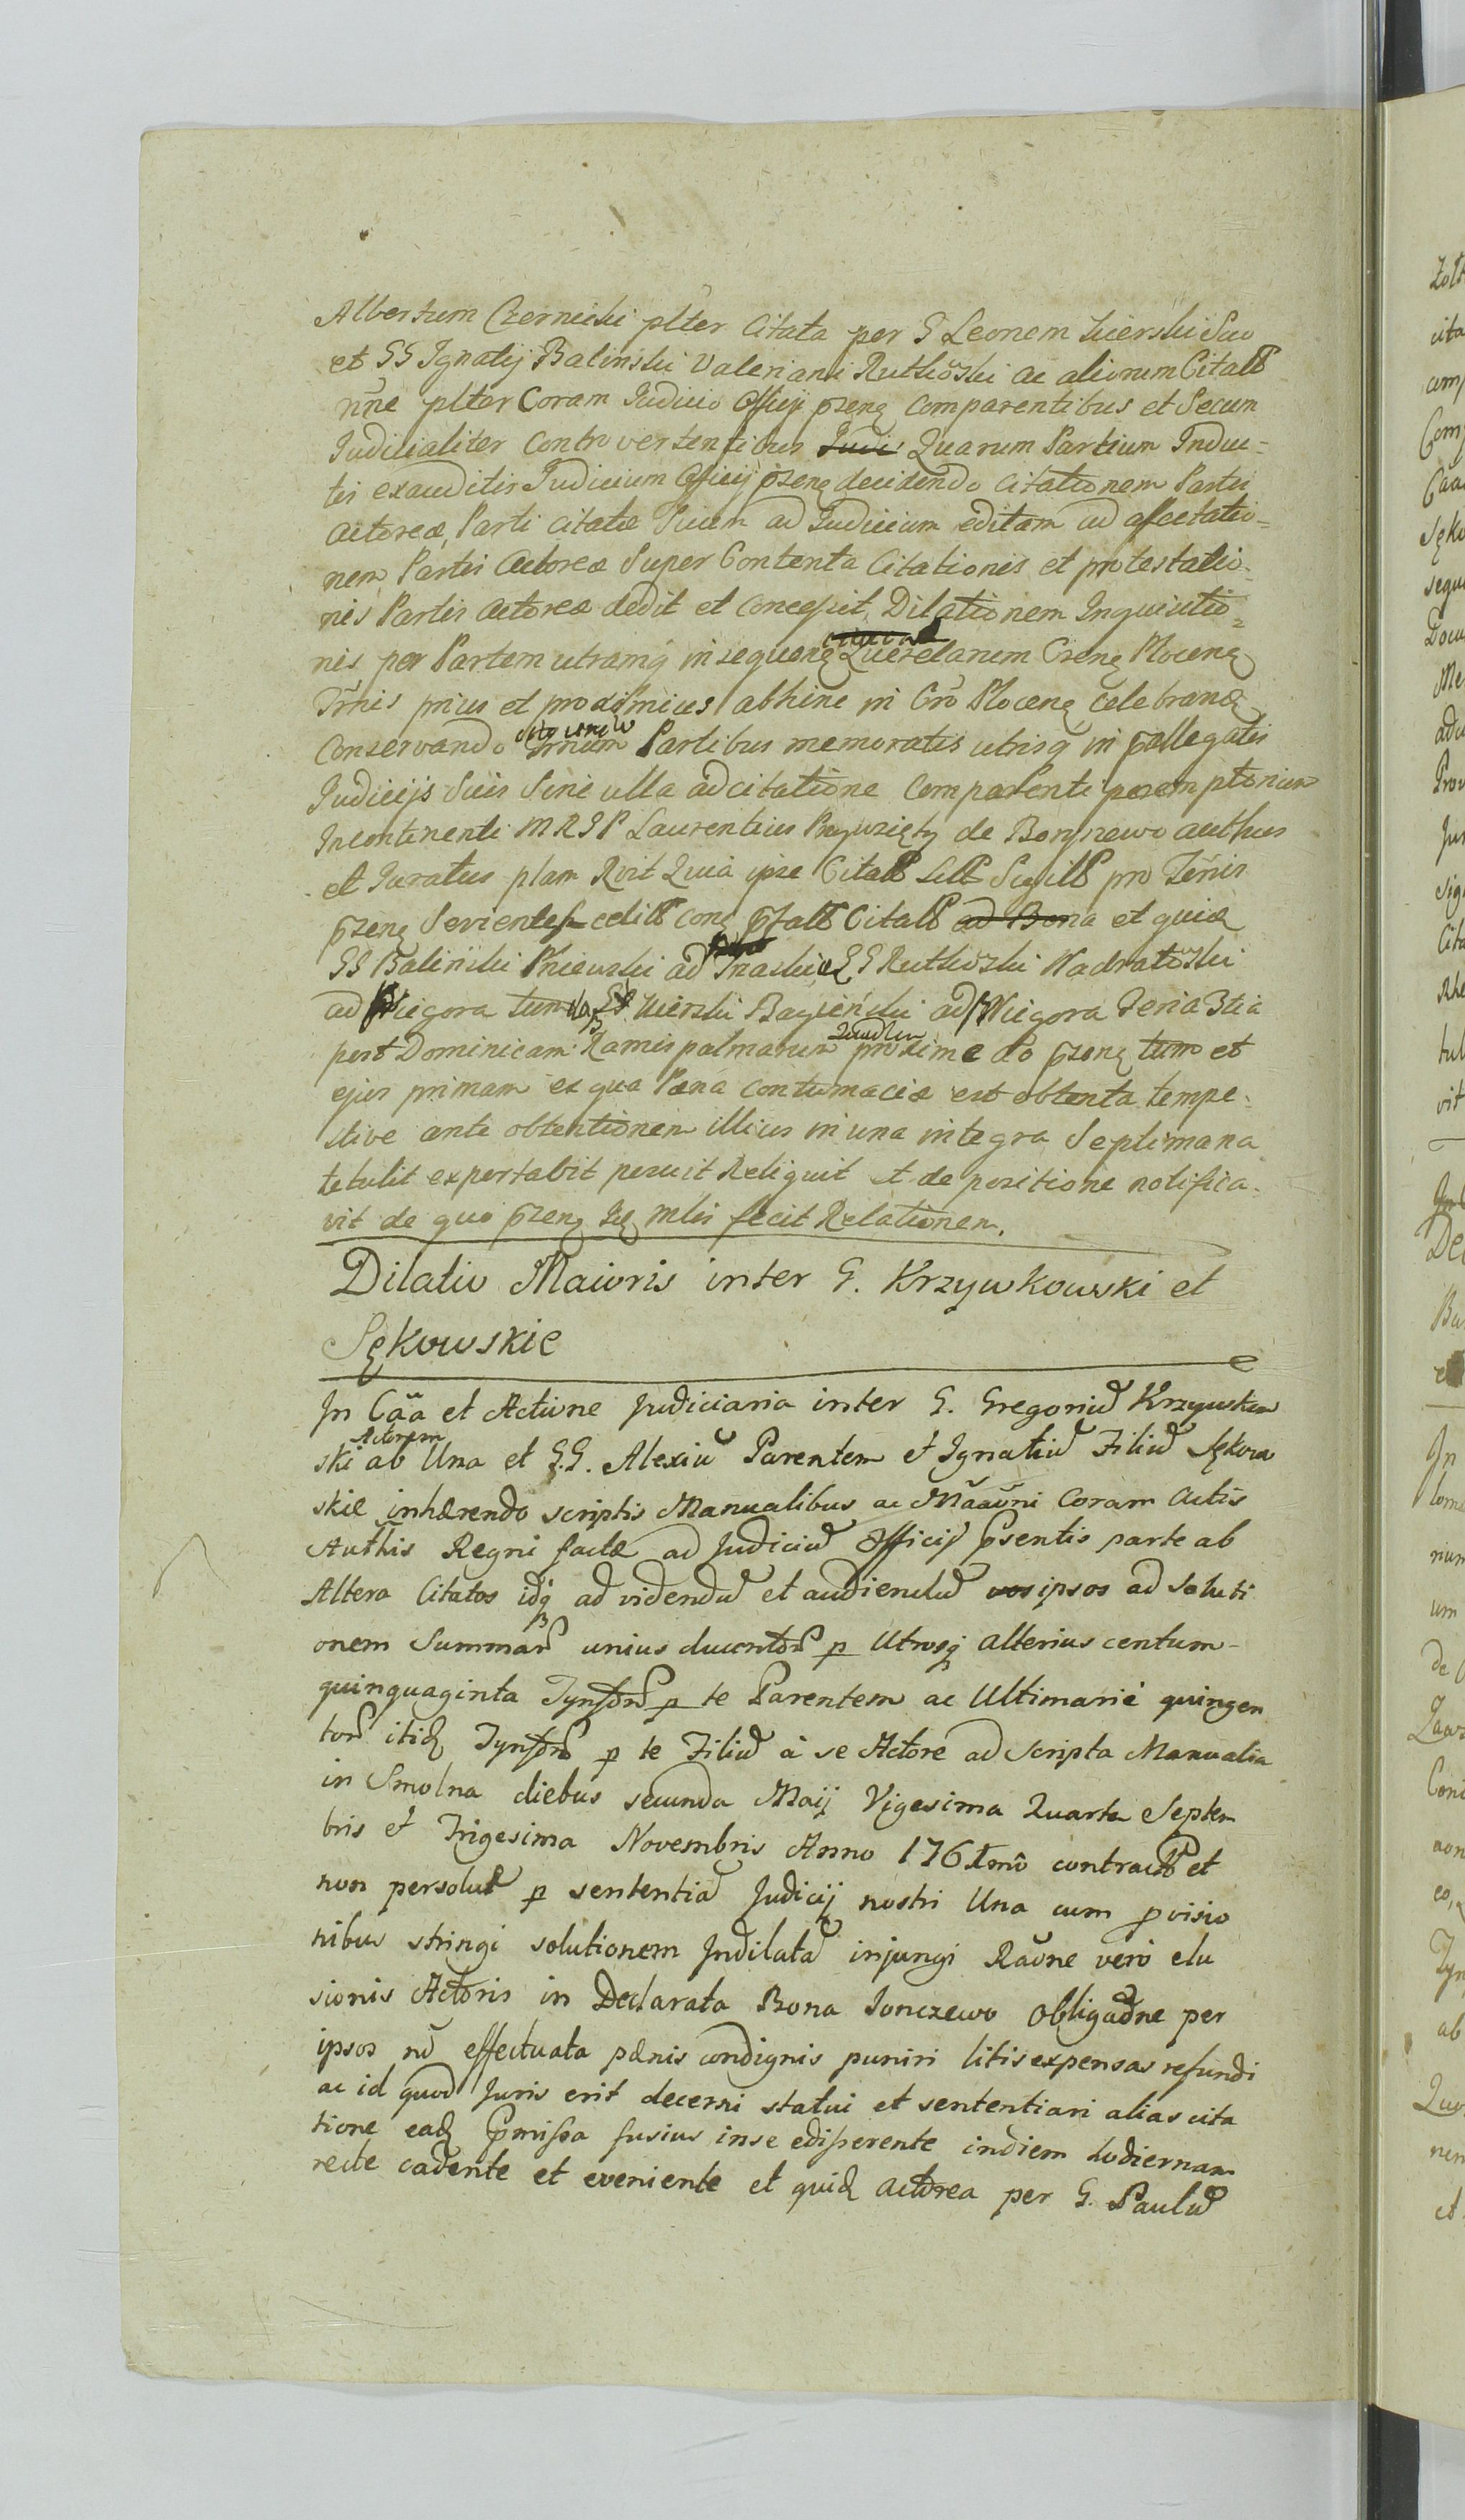 Albertum Czernicki plter Citata per G Leonem Kierski Suo
et GG Ignatij Balinski Valeriani Rutkowski ac aliorum Citatt
nne plter Coram Judicio Officij przenę Comparentibus et Secum
Judicialiter Controvertentibus Judi Quarum Partium Induc-
tis exauditis Judicium Officij przenę decidendo Citationem Partis
Actoreæ, Parti Citatæ Suum ad Judicium editam ad affectatio=
nem Partis Actoreæ Super Contenta Citationis et protestatio-
nis Partis Actoreæ dedit et Concessit, Dilationem Inquisitio=
nis per Partem utramq in sequenę Querelarum Crenę Plocenę
Trnis prius et proximius abhinc in Cro Plocenę celebranę
Conservando Trnum Partibus memoratis utrisq in pallegatis
Judicijs Suis Sine ulla adcitatione Comparenti peremptorium
Incontinenti MRSP Laurentius Przywzięty de Bonzewo authus
et Juratus plam Rvit Quia ipse Citatt Litt Sigilt pro Trnis
przenę Servientes editt conę pftatt Citatt ad Bona et quia
GG Balinski Kniewski ad Traski GG Rutkowski Nadratowski
ad Niegora tum GG Kierski Bagieński ad Niegora Feria 3tia
post Dominicam Ramis palmarum proxime Po przenę tum et
ejus primam ex qua Pæna Contumaciæ est obtenta tempe-
stive ante obtentionem illius in una integra Septimana
tetulit exportabit posuit Reliquit et de positione notifica-
vit de quo przenę Mtis fecit Relationem.
Dilatio Maioris inter G. Krzywkowski et
Sękowskie
In Cãa et Actione Judiciaria inter G. Gregoriũ Krzywkow
Actorem
ski ab Una et G.G. Alexiũ Parentem et Ignatiũ Filiũ Sękow
skie inhærendo scriptis Manualibus ac Mãaõni Coram Actis
Authis Regni factæ ad Judiciũ Officij Psentis parte ab
Altera Citatos idq ad videndũ et audiendũ vos ipsos ad soluti
onem Summarũ unius ducentorũ p Utrosq alterius centum-
quinquaginta Tynforũ p te Parentem ac Ultimariè quingen
torũ itidę Tynforũ p te Filiũ à se Actore ad Scripta Manualia
in Smolna diebus secunda Maij Vigesima Quarta Septem
bris et Trigesima Novembris Anno 1761mo contractũ et
non persolut p sententiã Judicij nostri Una cum pvisio
nibus stringi solutionem Indilatã injungi Raõne verò elu
sionis Actoris in Declarata Bona Jonczewo Obligaõne per
ipsos nõ effectuata pænis condignis puniri litisexpensas refundi
ac id quod Juris erit decerni statui et sententiari alias cita
tione eadę Pmissa fusius inse edisserente indiem hodiernam
recte cadente et eveniente et quidę actorea per G. Paulũ